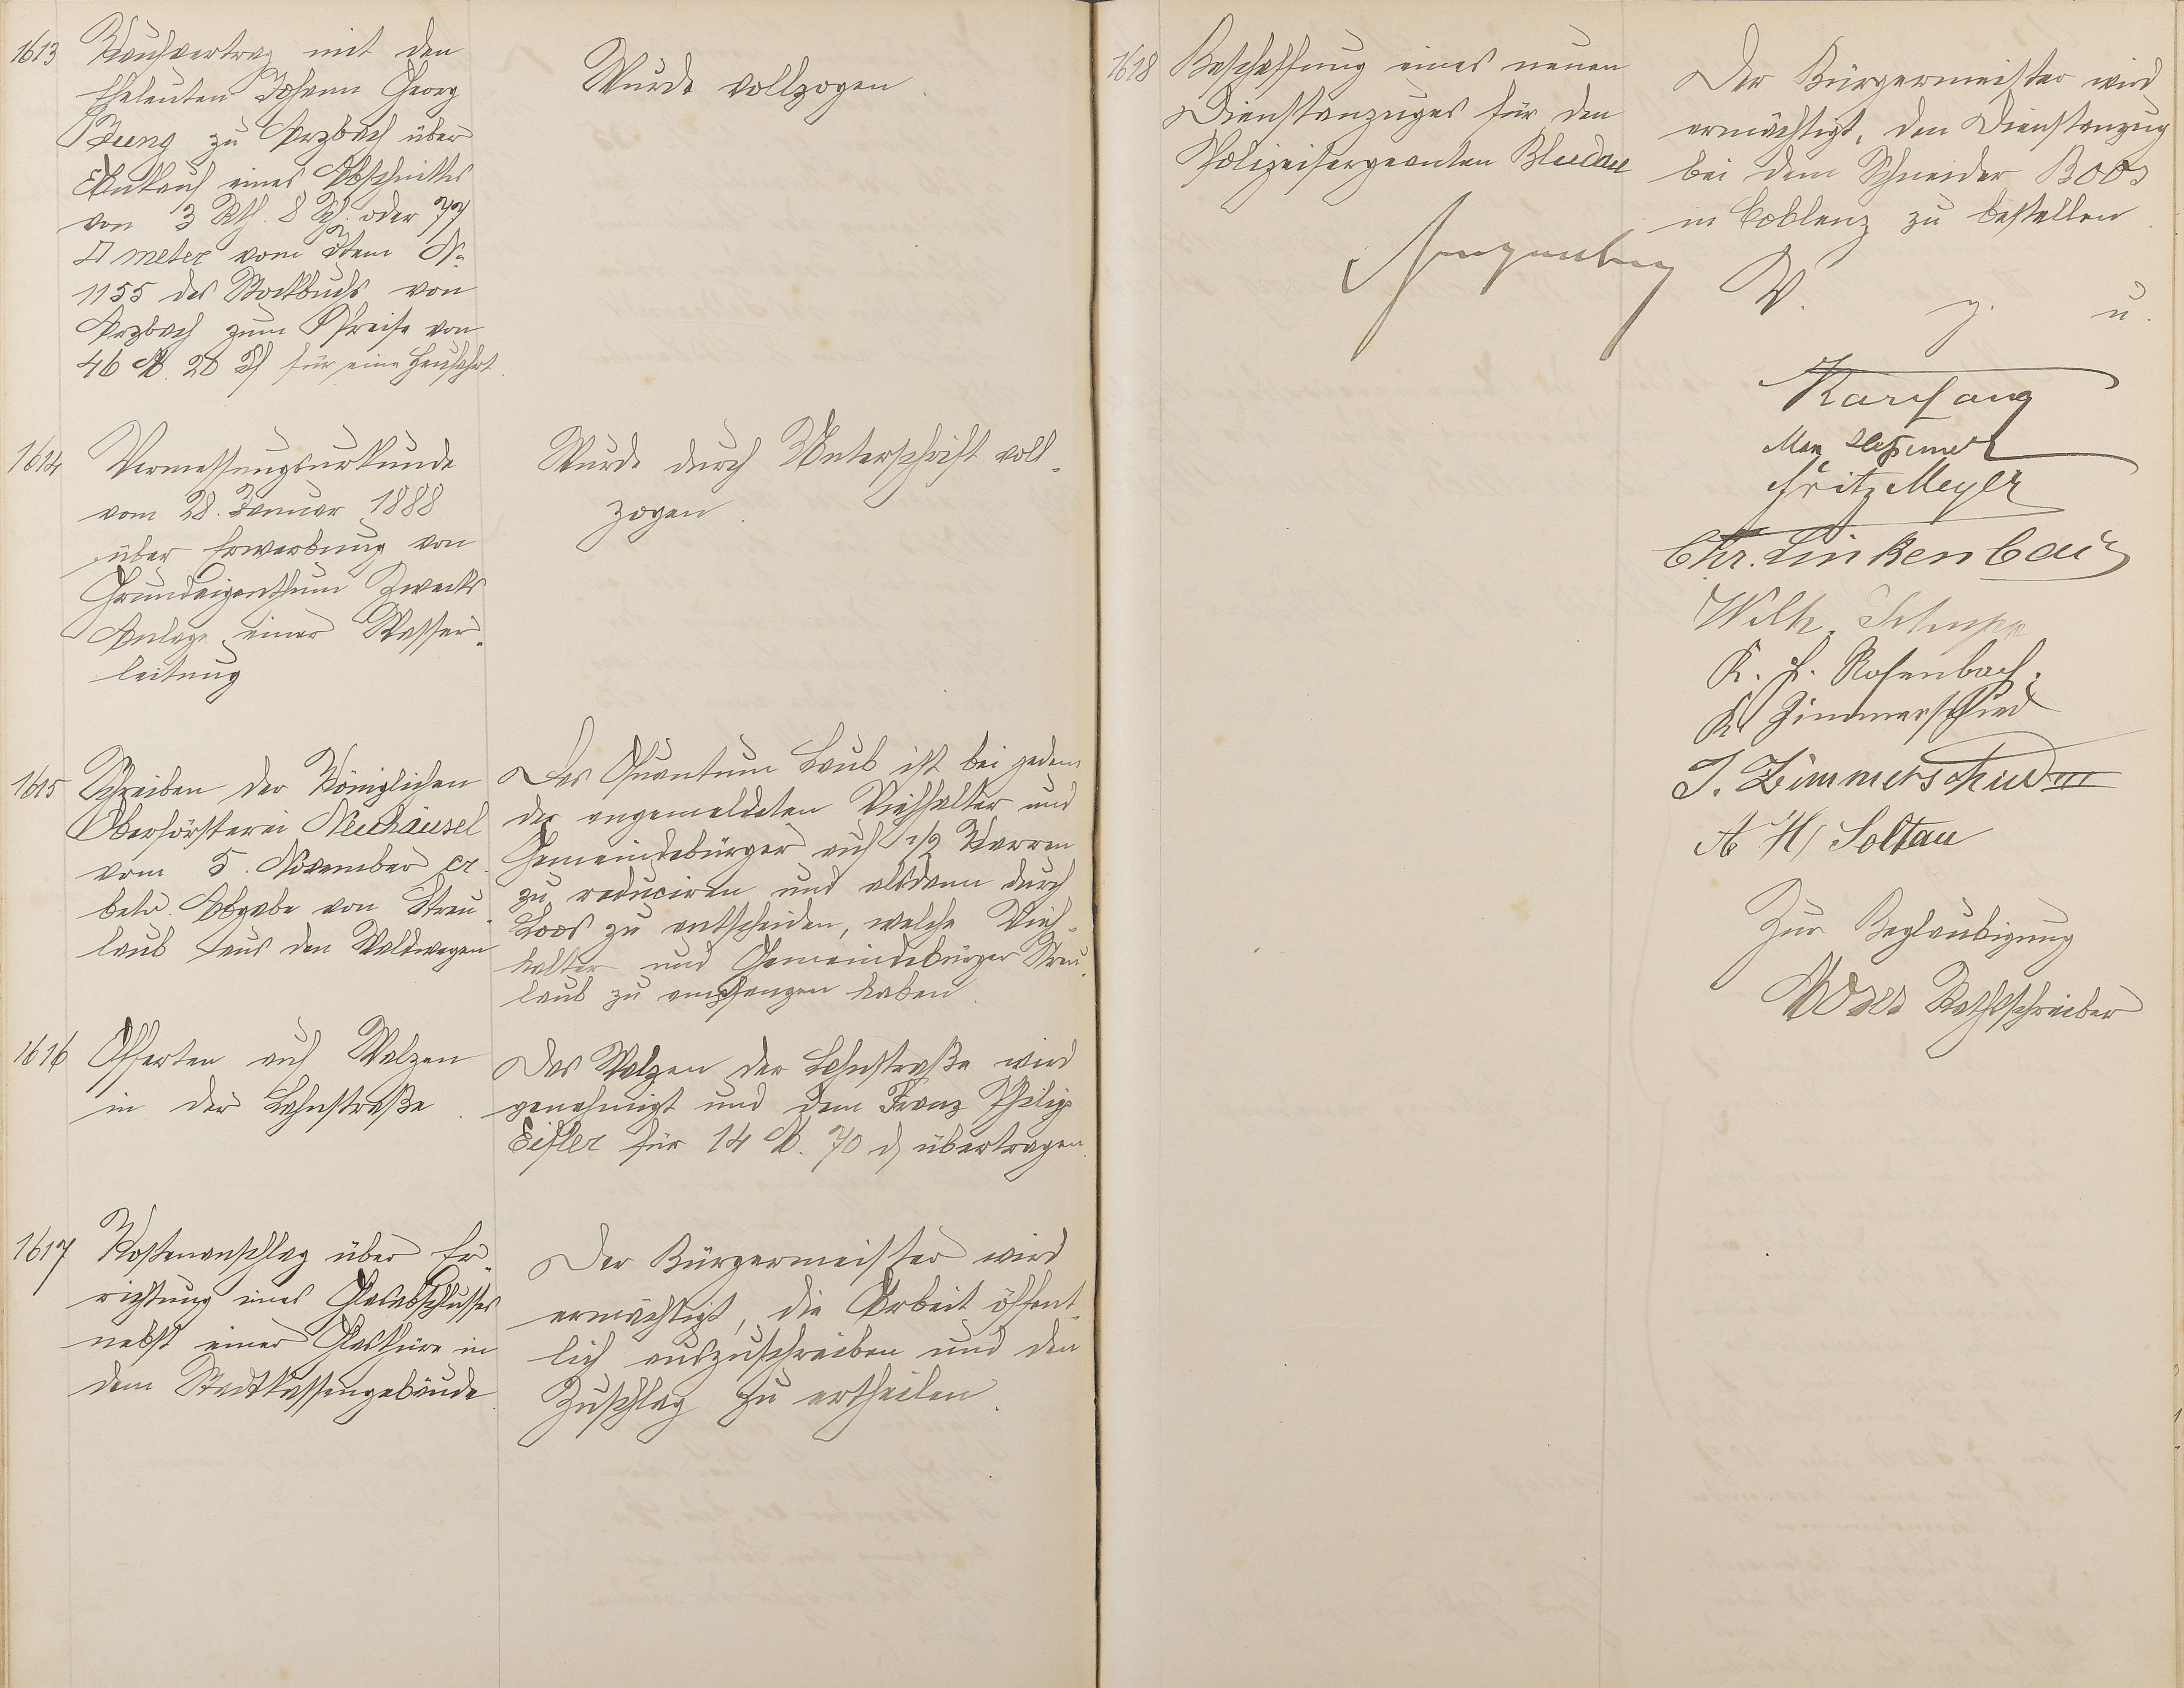 1613 Kaufvertrag mit den
Eheleuten Johann Georg
Jung zu Arzbach über
Ankauf eines Abschnittes
von 3 Rth. 8 Sch. oder 77
□ meter vom Item No
1155 des Stockbuchs von
Arzbach zum Preise von
46 M. 20 Pf für eine Heufahrt.
Wurde vollzogen.
1614 Vermessungsurkunde
vom 28. Januar 1888
über Erwerbung von
Grundeigenthum Zwecks
Anlage einer Wasser-
leitung
Wurde durch Unterschrift voll-
zogen.
1615 Schreiben der Königlichen
Oberförsterei Neuhäusel
vom 5. November cr.
betr. Abgabe von Streu-
laub aus den Waldwegen
Das Quantum Laub ist bei jedem
der angemeldeten Viehhalter und
Gemeindebürger auf 1/2 Karren
zu reduciren und alsdann durch
Loos zu entscheiden, welche Vieh-
halter und Gemeindebürger Streu-
laub zu empfangen haben.
1616 Offerten auf Walzen
in der Lahnstraße.
Das Walzen der Lahnstraße wird
genehmigt und dem Franz Philip
Eisler für 14 M. 70 d übertragen.
1617 Kostenanschlag über Er-
richtung eines Glasabschlusses
nebst einer Glasthüre in
dem Stadtkassengebäude.
Der Bürgermeister wird
ermächtigt, die Arbeit öffent-
lich auszuschreiben und den
Zuschlag zu ertheilen.
1618 Beschaffung eines neuen
Dienstanzuges für den
Polizeisergeanten Bludau
Der Bürgermeister wird
ermächtigt, den Dienstanzug
bei dem Schneider Boos
in Coblenz zu bestellen.
V. g. u.
Fritz Meyer
Chr. Linkenbach
Wilh. Schupp
K. H. Rosenbach.
K. Zimmerschied
J. Zimmerschied III
A H Soltau
Zur Beglaubigung
Rathschreiber